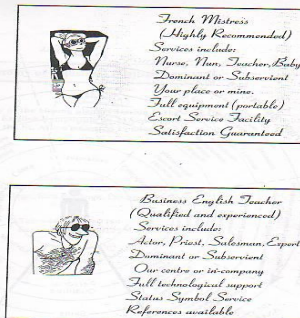 French Mistress
(Highly Recommended)
Services include:
Nurse, Nun, Teacher, Baby
Dominant or Subservient
Your place or mine.
Full equipment (portable)
Escort Service Facility
Satisfaction Guaranteed
Business English Teacher
(Qualified and experienced)
Services include:
Actor, Priest, Salesman, Expert
Dominant or Subservient
Our centre or in-company
Full technological support
Status Symbol Service
References available